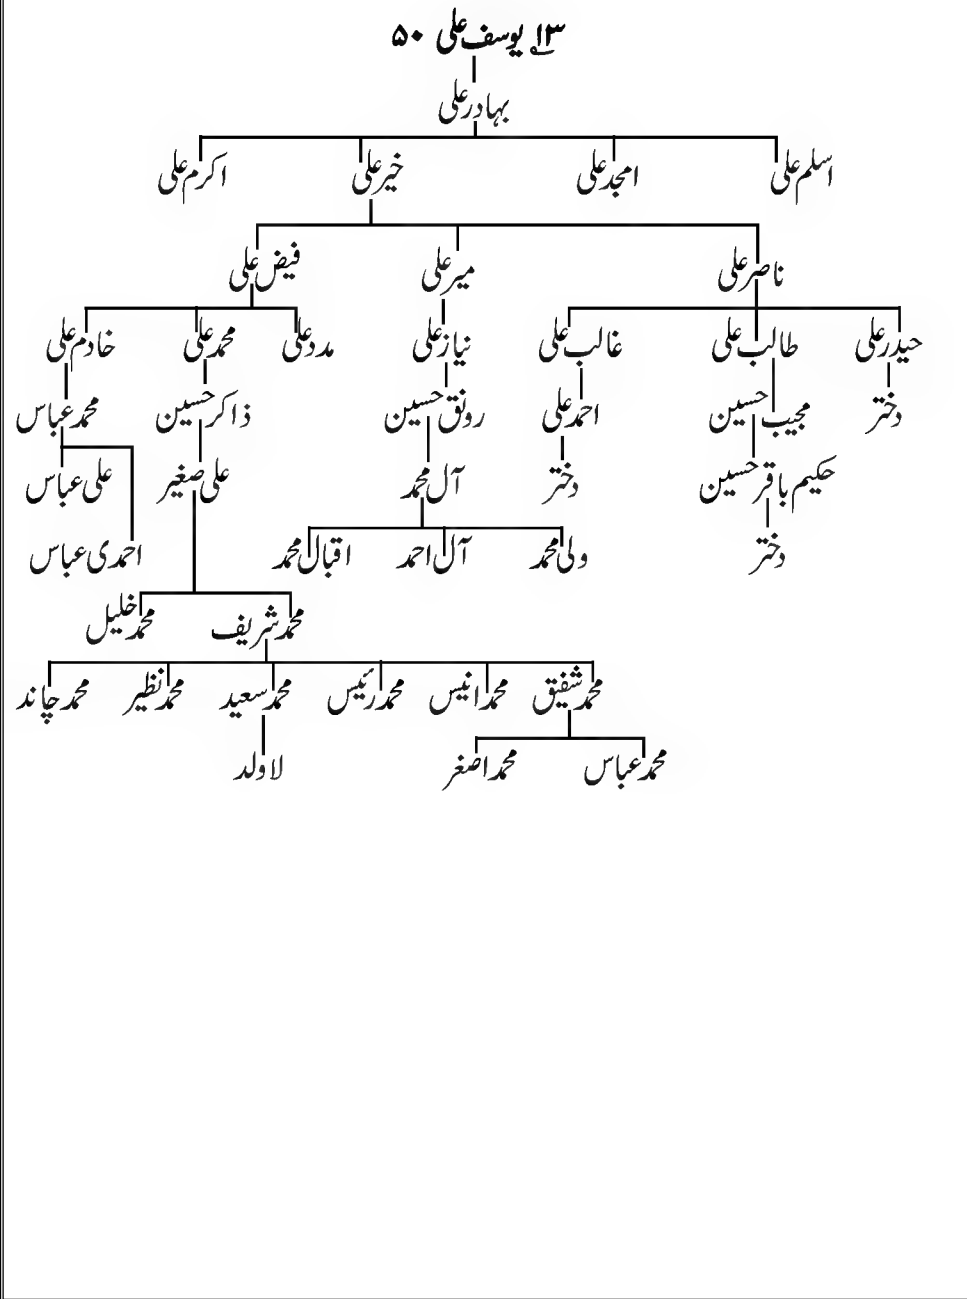 ۱۳ یوسف علی ۵۰
بہادر علی
اسلم علی امجد علی خیر علی اکرم علی
ناصر علی میر علی فیض علی
حیدر علی طالب علی غالب علی نیاز علی مدد علی محمد علی خادم علی
دختر مجیب حسین احمد علی رونق حسین ذاکر حسین محمد عباس
حکیم باقر حسین دختر آل محمد علی صغیر علی عباس
دختر ولی محمد آل احمد اقبال محمد احمدی عباس
محمد شریف محمد خلیل
محمد شفیق محمد انیس محمد رئیس محمد سعید محمد نظیر محمد چاند
محمد عباس محمد اصغر لا ولد